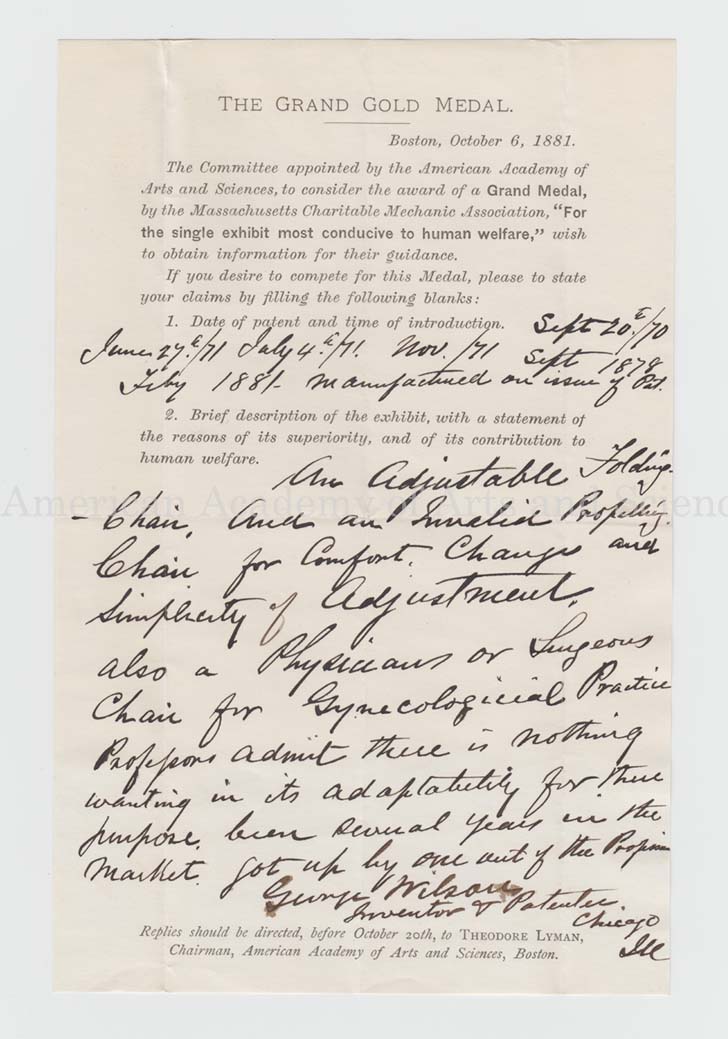 THE GRAND GOLD MEDAL.
Boston, October 6, 1881.
The Committee appointed by the American Academy of
Arts and Sciences, to consider the award of a Grand Medal,
by the Massachusetts Charitable Mechanic Association, "For
the single exhibit most conducive to human welfare," wish
to obtain information for their guidance.
If you desire to compete for this Medal, please to state
your claims by filling the following blanks:
1. Date of patent and time of introduction. Sept 20th/70
June 27th/71 July 4th/71. Nov. /71 Sept 1878
Feby 1881 - manufactured on issue of Pat.
2. Brief description of the exhibit, with a statement of
the reasons of its superiority, and of its contribution to
human welfare.
An Adjustable Folding
American Academy of Arts and Scienc
- Chair, And an Invalid Propelling
Chair for Comfort, Change and
Simplicity of Adjustment.
also a Physicians or Surgeons
Chair for Gynecological Practice
Professors admit there is nothing
wanting in its adaptability for there
purpose. been several years in the
market. got up by one out of the Profession
George Wilson
Inventor & Patentee
Chicago
Ill
Replies should be directed, before October 20th, to THEODORE LYMAN,
Chairman, American Academy of Arts and Sciences, Boston.